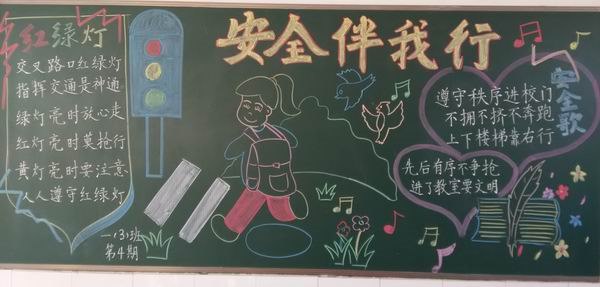 红绿灯
交叉路口红绿灯
指挥交通是神通
绿灯亮时放心走
红灯亮时莫抢行
黄灯亮时要注意
人人遵守红绿灯
一(3)班
第4期
安全伴我行
安全歌
遵守秩序进校门
不拥不挤不奔跑
上下楼梯靠右行
先后有序不争抢
进了教室要文明